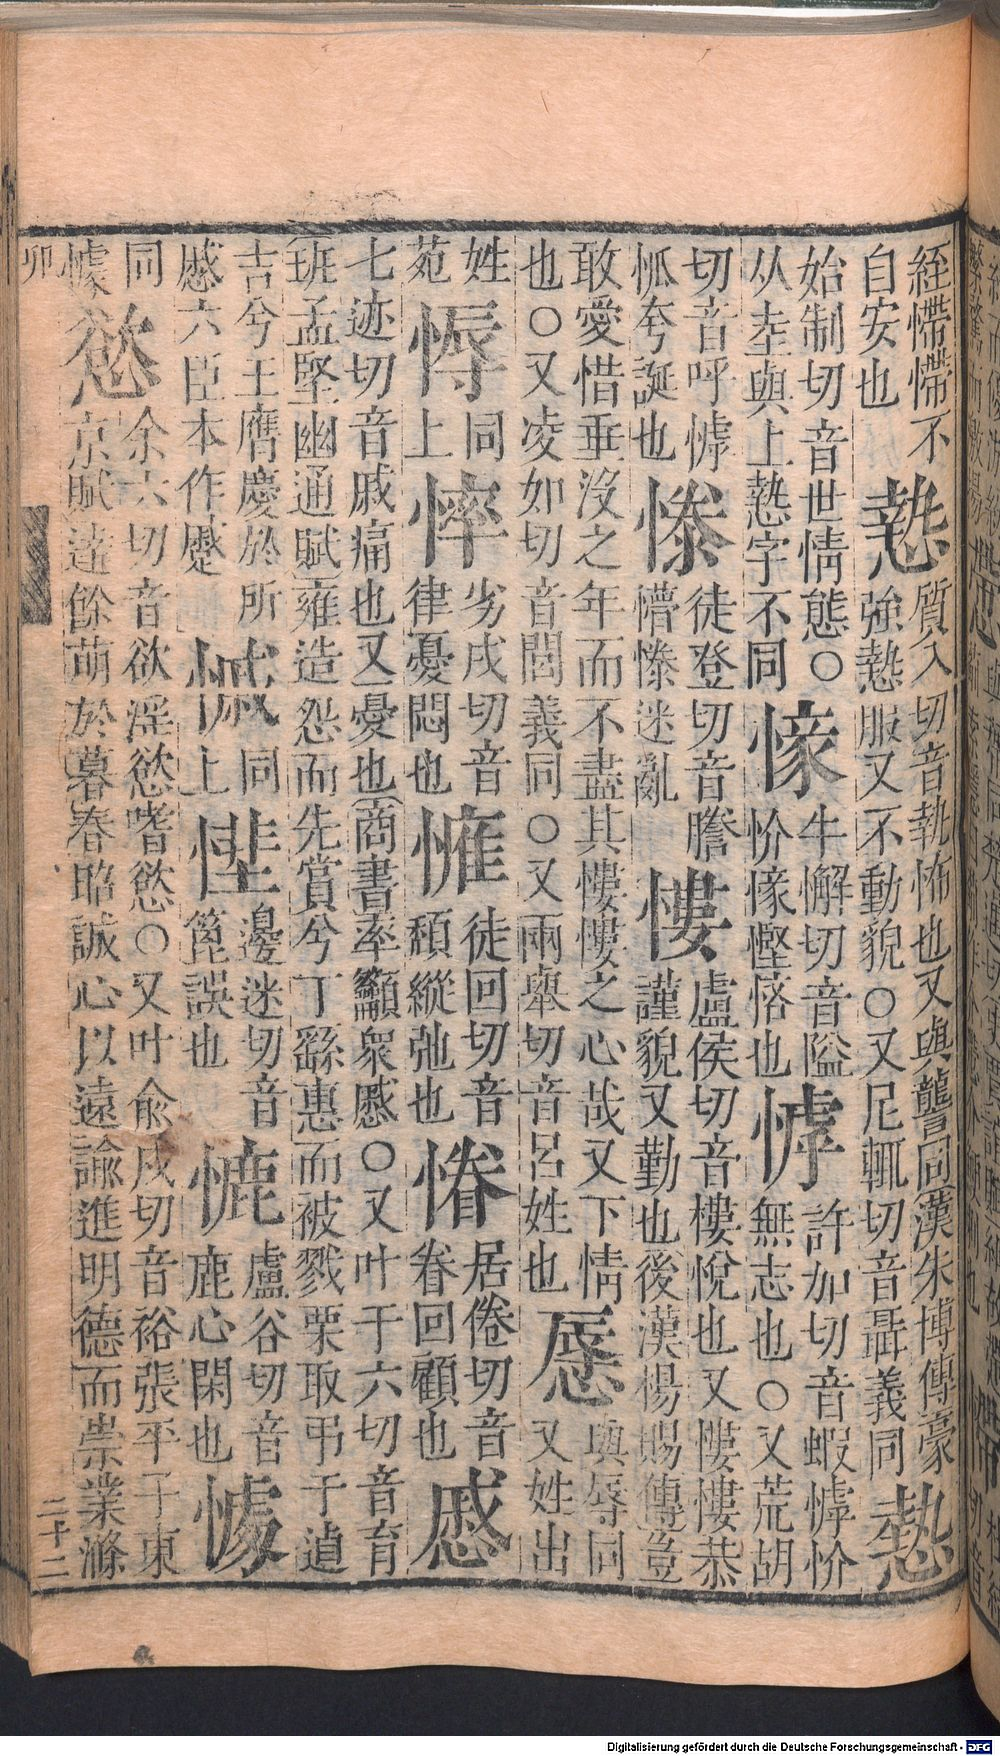 絰懘懘不
自安也
慹
質入切音執怖也又與讋同漢朱博傳豪
強慹服又不動貌○又尼輒切音聶義同
始制切音世情態○
从坴與上慹字不同
牛懈切音隘
忦慳悋也
許加切音蝦忦
無志也○又荒胡
切音呼
怟夸誕也
徒登切音騰
懵迷亂
慺
盧侯切音樓悅也又慺慺恭
謹貌又勤也後漢楊賜傳豈
敢愛惜垂沒之年而不盡其慺慺之心哉又下情
也○又凌如切音閭義同○又兩舉切音呂姓也
與辱同
又姓出
姓
苑
同
上
劣戌切音
律憂悶也
徒回切音
頹縱弛也
居倦切音
眷回顧也
慼
七迹切音戚痛也又憂也商書率籲衆慼○又叶于六切音育
班孟堅幽通賦雍造怨而先賞兮丁繇惠而被戮栗取弔于逌
吉兮王膺慶於所
慼六臣本作蹙
慽
同
上
悂
邊迷切音
篦誤也
盧谷切音
鹿心閑也
慾
余六切音欲淫慾嗜慾○又叶俞戍切音裕張平子東
京賦達餘萌於暮春昭誠心以遠諭進明德而崇業滌
卯
二十二
Digitalisierung gefördert durch die Deutsche Forschungsgemeinschaft - DFG